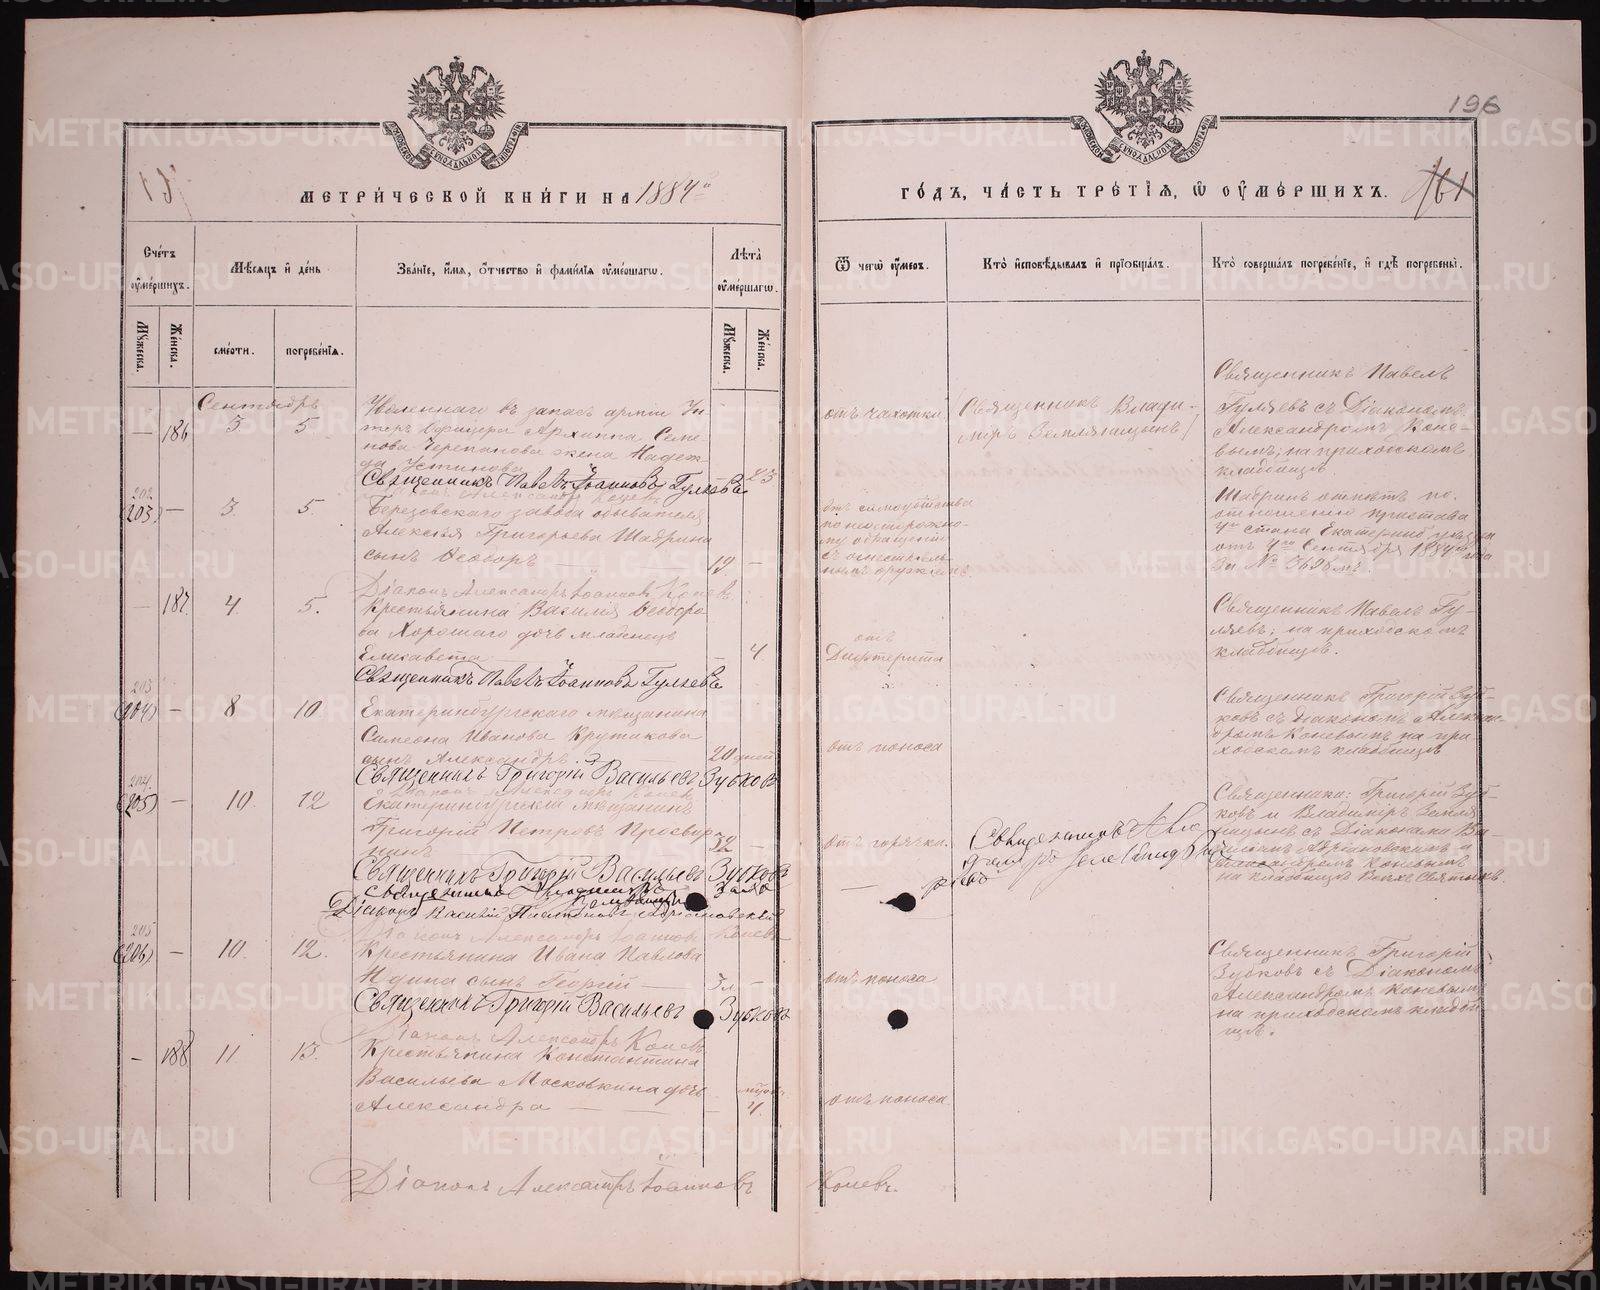 196
161
МЕТРИЧЕСКОЙ КНИГИ НА 1884й
ГОДЪ, ЧАСТЬ ТРЕТІЯ, Ѿ ОУМЕРШИХЪ.
Счетъ оумершихъ.
Мѣсяцъ и день.
Званіе, имя, отчество и фамилія оумершагω.
Лѣта оумершагω.
Ѿ чегω оумеръ.
Кто исповѣдывалъ и пріобщалъ.
Кто совершалъ погребеніе, и гдѣ погребены.
Мужеска.
Женска.
смерти.
погребенія.
Мужеска.
Женска.
Сентябрь
— 186 3 5
Уволеннаго въ запасъ арміи Ун-
теръ Офицера Архиппа Семе-
нова Черепанова жена Надеж-
да Устинова
23
отъ чахотки
Священникъ Влади-
міръ Земляницынъ
Священникъ Павелъ
Гуляевъ съ Діакономъ
Александромъ Коне-
вымъ, на приходскомъ
кладбищѣ
Священникъ Павелъ Іоанновъ Гуляевъ
Діаконъ Александръ Коневъ
202
(203) — 3. 5.
Березовскаго завода обывателя
Алексѣя Григорьева Шабрина
сынъ Ѳеодоръ
19 —
отъ самоубійства
по неосторожно-
му обращенію
съ огнестрѣль-
нымъ оружіемъ.
Шабринъ отпѣтъ по
отношенію пристава
4го стана Екатеринб. уѣзда
отъ 4го Сентября 1884 года
за №
Діаконъ Александръ Іоанновъ Коневъ
— 187. 4. 5.
Крестьянина Василія Ѳеодоро-
ва Хорошаго дочь младенецъ
Елисавета
4.
отъ
Дифтерита
Священникъ Павелъ Гу-
ляевъ; на приходскомъ
кладбищѣ.
Священникъ Павелъ Іоанновъ Гуляевъ
203
(204) — 8 10
Екатеринбургскаго мѣщанина
Симеона Иванова Крутакова
сынъ Александръ
20 дней
отъ поноса
Священникъ Григорій Зуб-
ковъ съ Діакономъ Алексан-
дромъ Коневымъ на при-
ходскомъ кладбищѣ
Священникъ Григорій Васильевъ Зубковъ
Діаконъ Александръ Коневъ
204
(205) — 10. 12
Екатеринбургскій мѣщанинъ
Григорій Петровъ Просвир-
нинъ
32 —
отъ горячки.
Священникъ
Священники: Григорій Зуб-
ковъ и Владиміръ Земля-
ницынъ съ Діаконами Ва-
силіемъ Адріановскимъ и
Александромъ Коневымъ
на кладбищѣ Всѣхъ Святыхъ.
Священникъ Григорій Васильевъ Зубковъ
Священникъ Владиміръ
Діаконъ Василій Платоновъ Адріановскій
Діаконъ Александръ Іоанновъ Коневъ
205
(206) — 10. 12.
Крестьянина Ивана Павлова
сынъ Георгій
—
отъ поноса
Священникъ Григорій
Зубковъ съ Діакономъ
Александромъ Коневымъ
на приходскомъ кладби-
щѣ.
Священникъ Григорій Васильевъ Зубковъ
Діаконъ Александръ Коневъ
— 188 11 13.
Крестьянина Константина
Васильева Московкина дочь
Александра
4.
отъ поноса
Діаконъ Александръ Іоанновъ Коневъ.